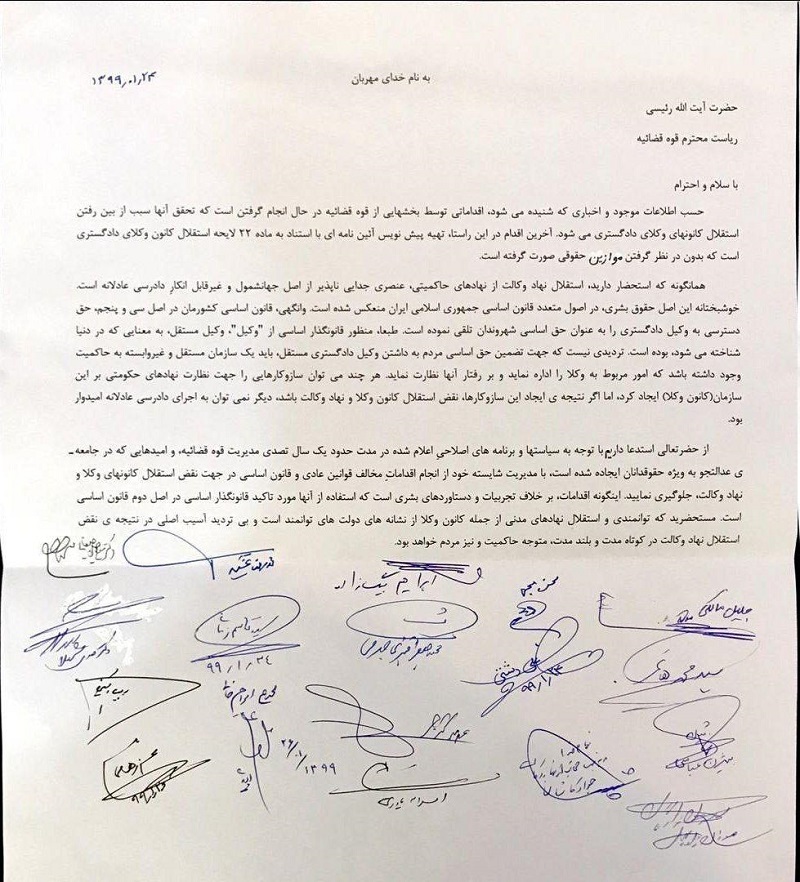 به نام خدای مهربان
۱۳۹۹٫۰۱٫۲۴
حضرت آیت الله رئیسی
ریاست محترم قوه قضائیه
با سلام و احترام
حسب اطلاعات موجود و اخباری که شنیده می شود، اقداماتی توسط بخشهایی از قوه قضائیه در حال انجام گرفتن است که تحقق آنها سبب از بین رفتن
استقلال کانونهای وکلای دادگستری می شود. آخرین اقدام در این راستا، تهیه پیش نویس آئین نامه ای با استناد به ماده ۲۲ لایحه استقلال کانون وکلای دادگستری
است که بدون در نظر گرفتن موازین حقوقی صورت گرفته است.
همانگونه که استحضار دارید، استقلال نهاد وکالت از نهادهای حاکمیتی، عنصری جدایی ناپذیر از اصل جهانشمول و غیرقابل انکارِ دادرسی عادلانه است.
خوشبختانه این اصل حقوق بشری، در اصول متعدد قانون اساسی جمهوری اسلامی ایران منعکس شده است. وانگهی، قانون اساسی کشورمان در اصل سی و پنجم، حق
دسترسی به وکیل دادگستری را به عنوان حق اساسی شهروندان تلقی نموده است. طبعا، منظور قانونگذار اساسی از "وکیل"، وکیل مستقل، به معنایی که در دنیا
شناخته می شود، بوده است. تردیدی نیست که جهت تضمین حق اساسی مردم به داشتن وکیل دادگستری مستقل، باید یک سازمان مستقل و غیروابسته به حاکمیت
وجود داشته باشد که امور مربوط به وکلا را اداره نماید و بر رفتار آنها نظارت نماید. هر چند می توان سازوکارهایی را جهت نظارت نهادهای حکومتی بر این
سازمان(کانون وکلا) ایجاد کرد، اما اگر نتیجه ی ایجاد این سازوکارها، نقض استقلال کانون وکلا و نهاد وکالت باشد، دیگر نمی توان به اجرای دادرسی عادلانه امیدوار
بود.
از حضرتعالی استدعا داریم با توجه به سیاستها و برنامه های اصلاحیِ اعلام شده در مدت حدود یک سال تصدی مدیریت قوه قضائیه، و امیدهایی که در جامعه
ی عدالتجو به ویژه حقوقدانان ایجاده شده است، با مدیریت شایسته خود از انجام اقداماتِ مخالف قوانین عادی و قانون اساسی در جهت نقض استقلال کانونهای وکلا و
نهاد وکالت، جلوگیری نمایید. اینگونه اقدامات، بر خلاف تجربیات و دستاوردهای بشری است که استفاده از آنها مورد تاکید قانونگذار اساسی در اصل دوم قانون اساسی
است. مستحضرید که توانمندی و استقلال نهادهای مدنی از جمله کانون وکلا از نشانه های دولت های توانمند است و بی تردید آسیب اصلی در نتیجه ی نقض
استقلال نهاد وکالت در کوتاه مدت و بلند مدت، متوجه حاکمیت و نیز مردم خواهد بود.
جلیل مالکی
ابراهیم
۹۹٫۱٫۲۴
۱۳۹۹